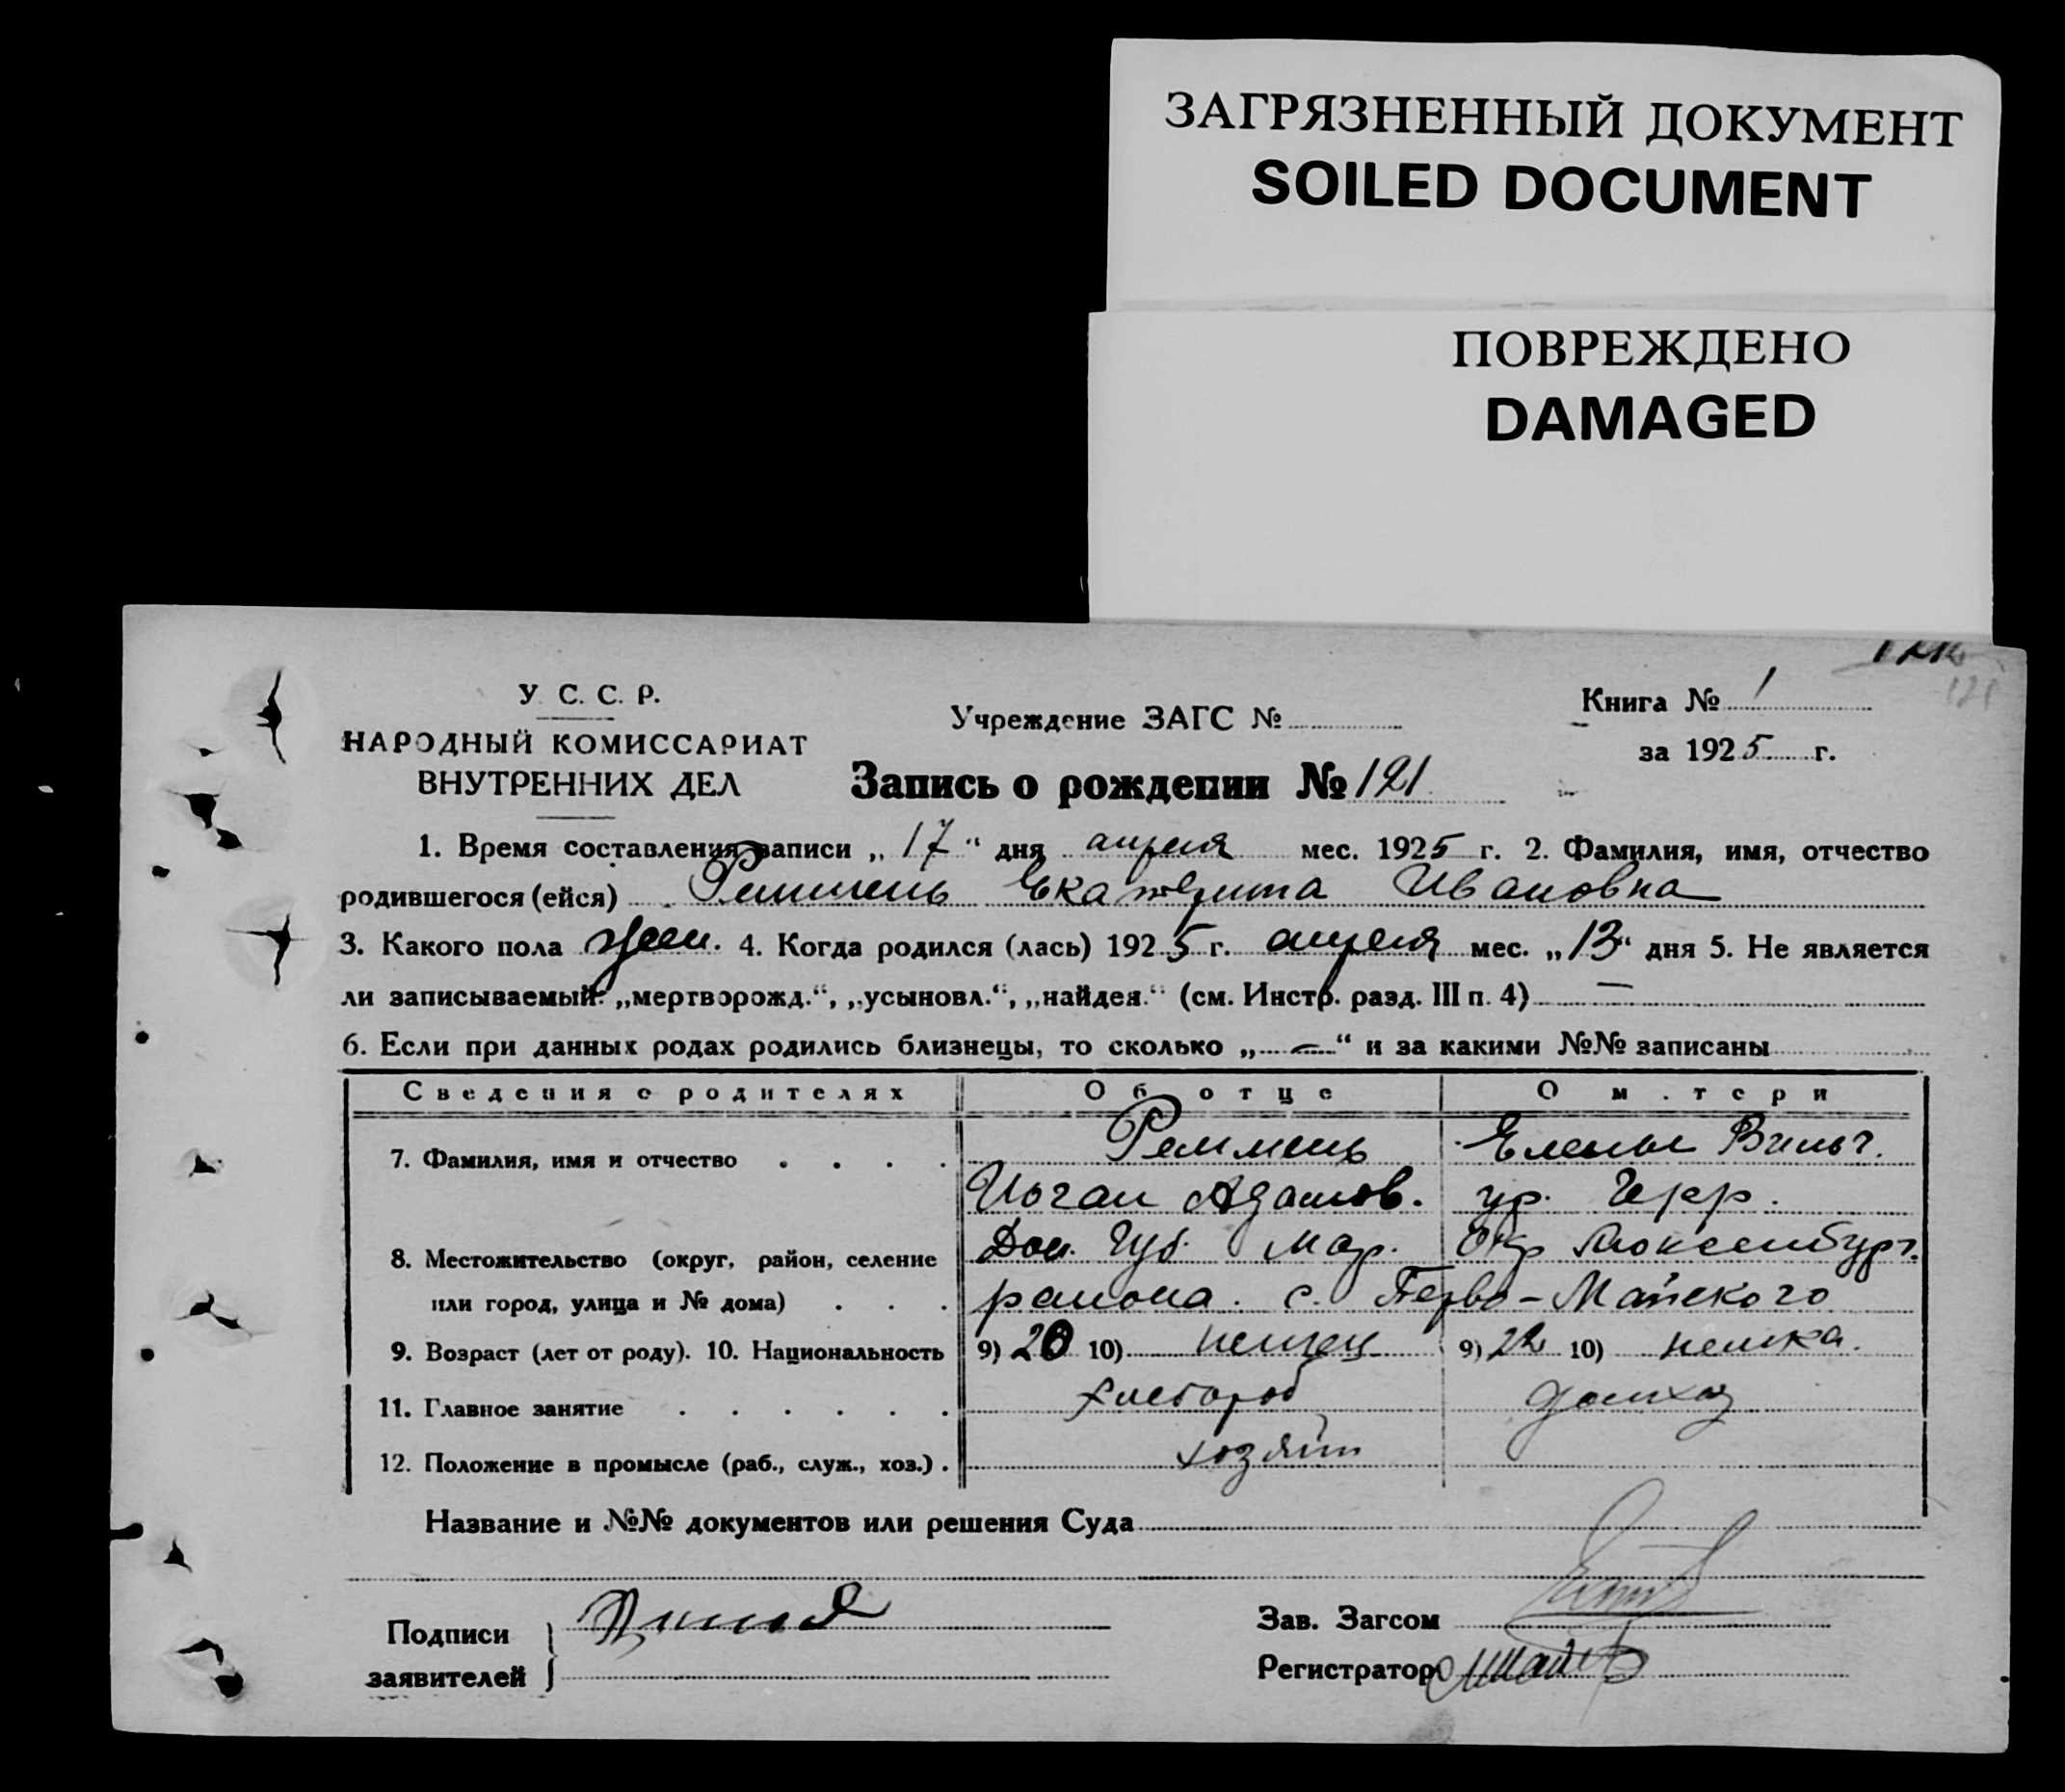 ЗАГРЯЗНЕННЫЙ ДОКУМЕНТ
SOILED DOCUMENT
ПОВРЕЖДЕНО
DAMAGED
У. С. С. Р.
НАРОДНЫЙ КОМИССАРИАТ
ВНУТРЕННИХ ДЕЛ
Учреждение ЗАГС №
Книга № 1
121
за 1925 г.
Запись о рождении № 121
1. Время составления записи „17“ дня апреля мес. 1925 г. 2. Фамилия, имя, отчество
родившегося (ейся) Реммень Екатерина Ивановна
3. Какого пола жен. 4. Когда родился (лась) 1925 г. апреля мес. „13“ дня 5. Не является
ли записываемый: „мертворожд.“, „усыновл.“, „найден.“ (см. Инстр. разд. III п. 4) —
6. Если при данных родах родились близнецы, то сколько „—“ и за какими №№ записаны
Сведения о родителях Об отце О м.тери
7. Фамилия, имя и отчество . . . . Реммень Елены Вильг.
Иоган Адамов. ур. Герр.
8. Местожительство (округ, район, селение Дон. Губ. Мар. Окр Люксембург.
или город, улица и № дома) . . . района. с. Перво-Майского
9. Возраст (лет от роду). 10. Национальность 9) 26 10) немец 9) 22 10) немка.
11. Главное занятие . . . . . . хлебороб домхоз
12. Положение в промысле (раб., служ., хоз.) . хозяин
Название и №№ документов или решения Суда
Подписи
заявителей
Зав. Загсом
Регистратор